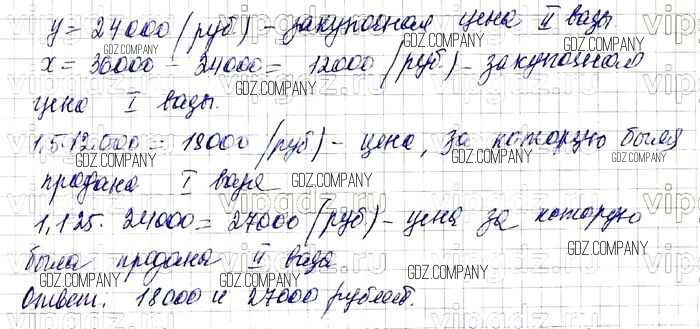 y = 24000 (руб) - закупочная цена II вазы
x = 36000 - 24000 = 12000 (руб) - закупочная
цена I вазы.
1,5·12.000 = 18000 (руб) - цена, за которую была
продана I ваза
1,125·24000 = 27000 (руб) - цена за которую
была продана II ваза
Ответ. 18000 и 27000 рублей.
GDZ.COMPANY
GDZ.COMPANY
GDZ.COMPANY
GDZ.COMPANY
GDZ.COMPANY
GDZ.COMPANY
GDZ.COMPANY
GDZ.COMPANY
GDZ.COMPANY
GDZ.COMPANY
GDZ.COMPANY
vipgdz.ru